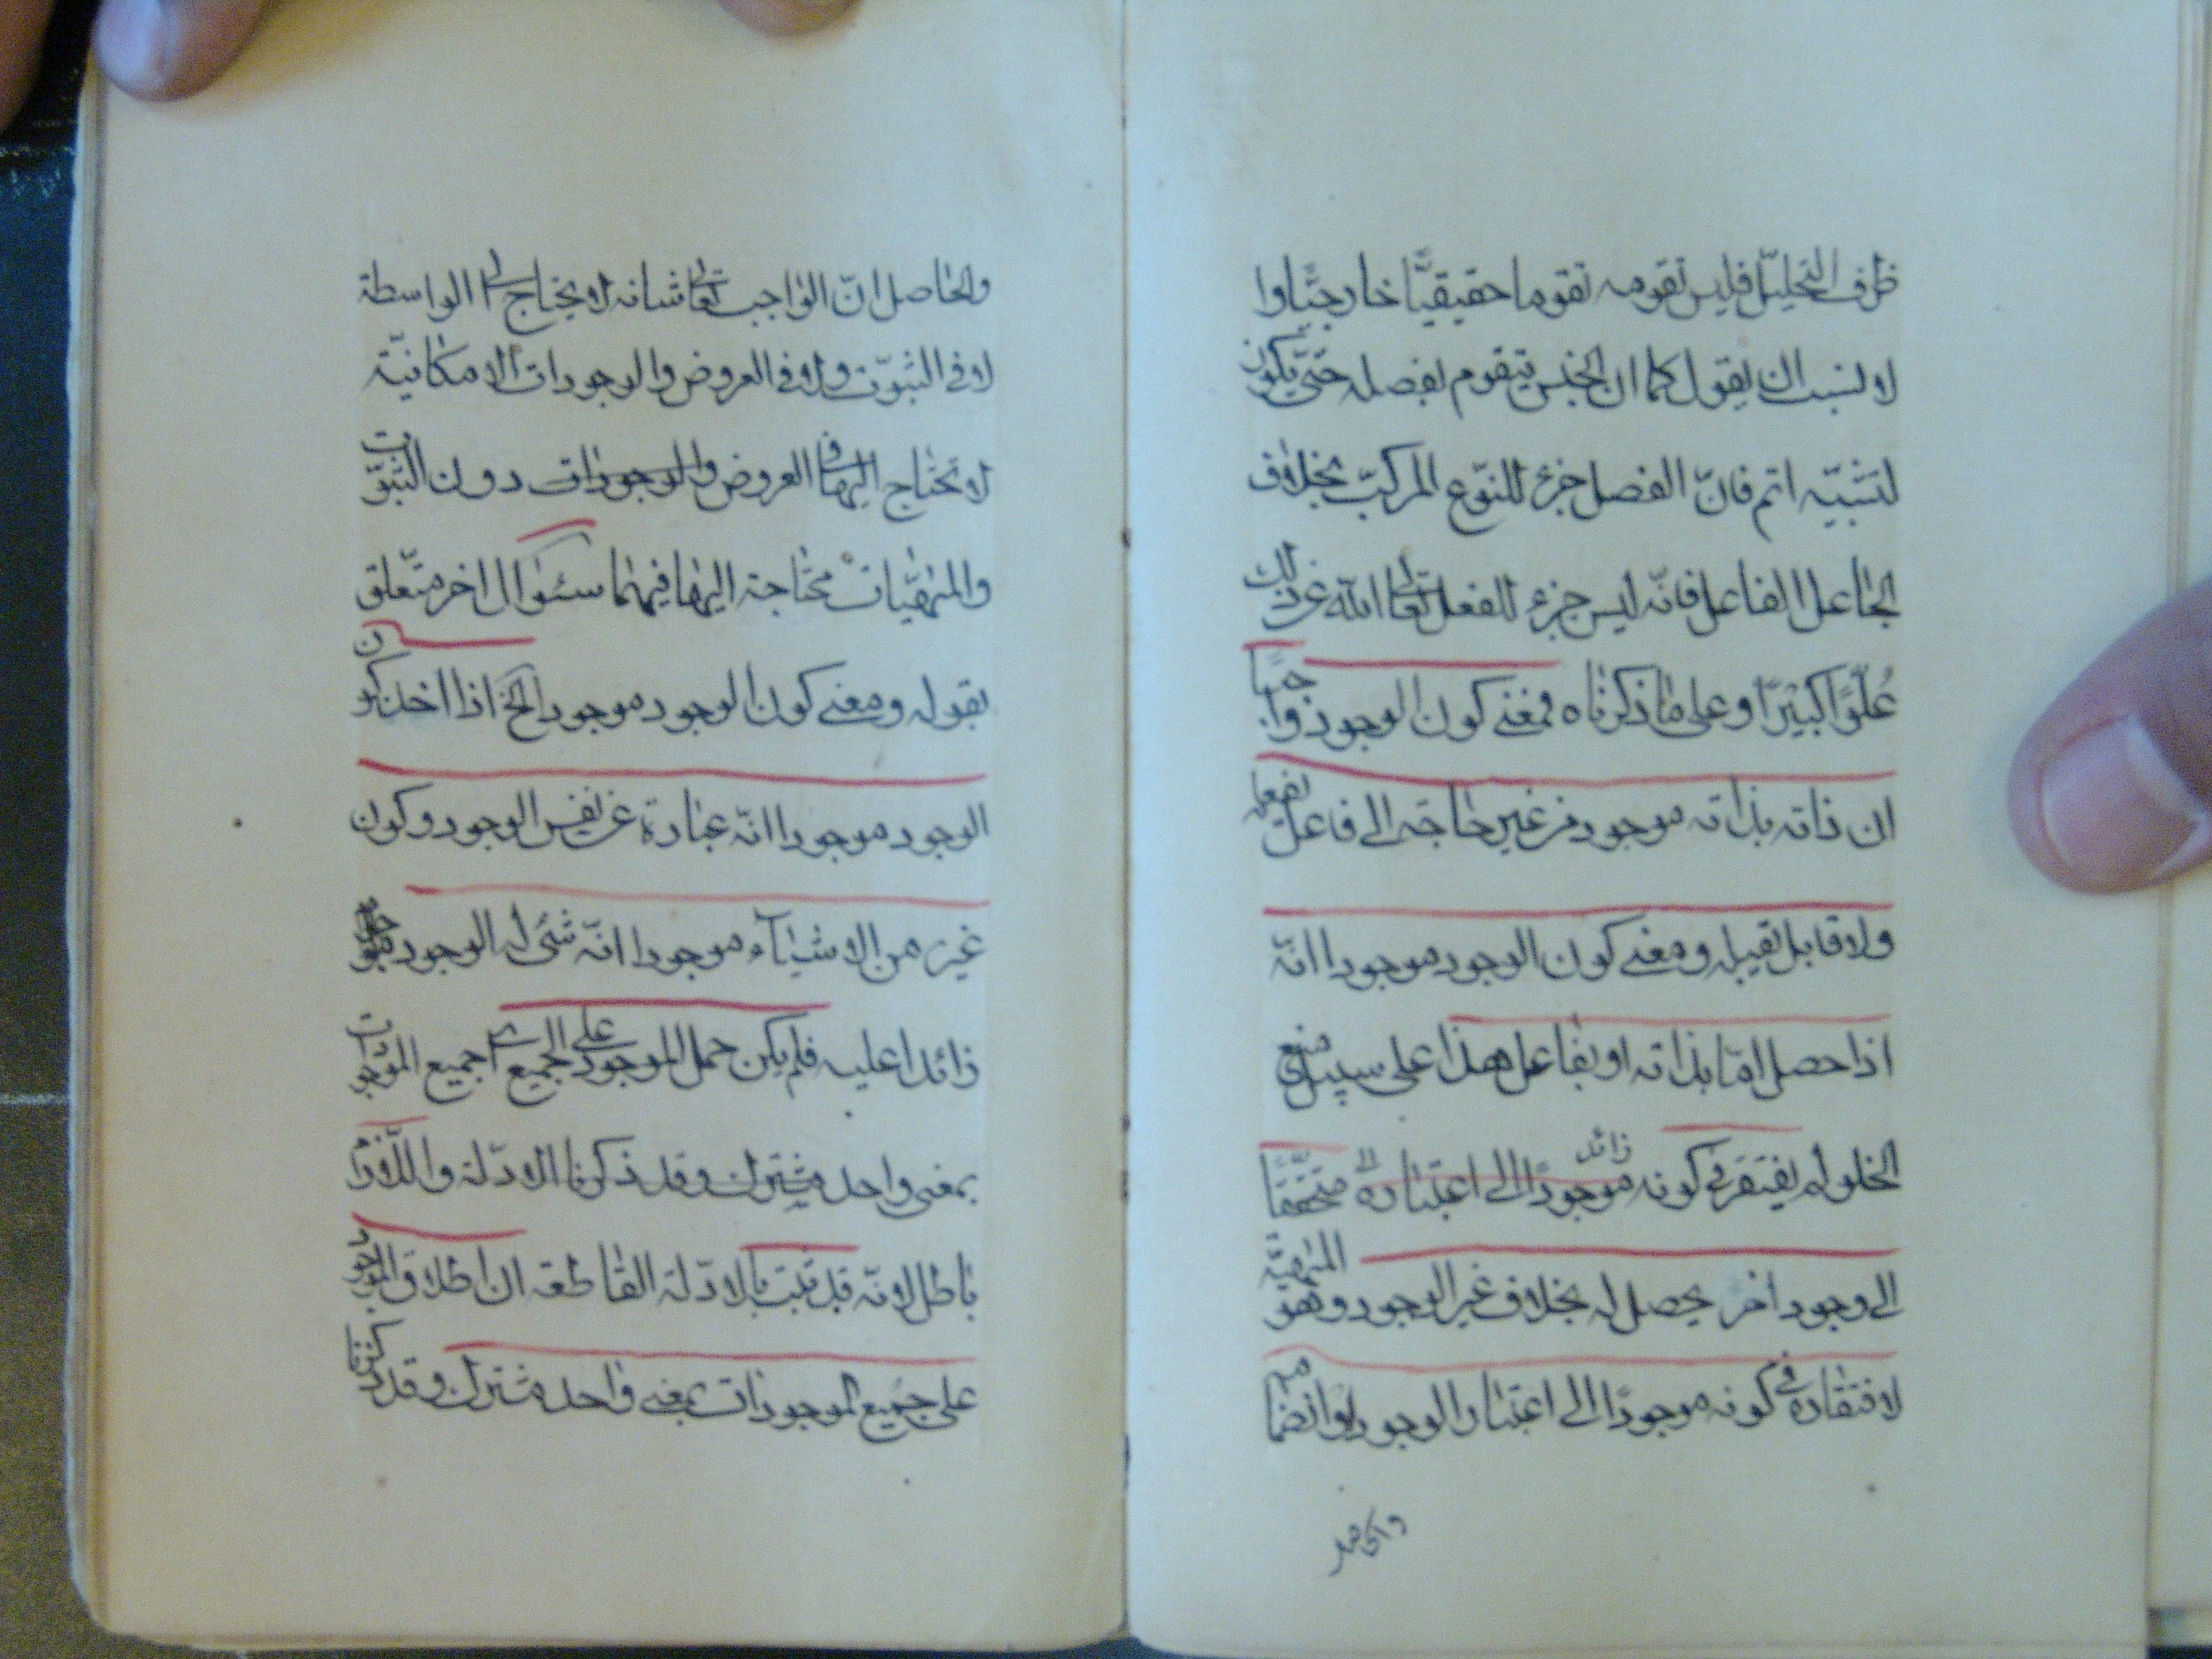 ظرف التحليل فليس تقومه تقوما حقيقيّا خارجيّا وا
لا لنسبت ان يقول كما ان الجنس يتقوم بفصله حتى يكون
لتشبيه اتم فانّ الفصل جزء للنّوع المركبّ بخلاف
الجاعل الفاعل فانّه ليس جزء للفعل تعالى الله عن ذلك
عُلوًّا كبيرًا وعلى ما ذكرناه فمعنى كون الوجود واجبًا
ان ذاته بذاته موجود من غير حاجة الى فاعل يفعله
ولا قابل يقبله ومعنى كون الوجود موجودا انّه
اذا حصل امّا بذاته او بفاعل هذا على سبيل منع
الخلو لم يفتقر فى كونه متحققًا موجودًا الى اعتبار زائد
الى وجود اخر يحصل له بخلاف غير الوجود وهو المهيّة
لافتقاره فى كونه موجودًا الى اعتبار الوجود وانضمامه
والحاصل
والحاصل انّ الواجب تعالى شانه لا يحتاج الى الواسطة
لا فى الثبوت ولا فى العروض والوجودات الامكانيّة
لا تحتاج اليها فى العروض والوجودات دون الثبوت
والمهيّات محتاجة اليها فيهما سئوال اخر متعلق
بقوله ومعنى كون الوجود موجودا الخ اذا اخذ كون
الوجود موجودا انّه عبارة عن نفس الوجود وكون
غيره من الاشياء موجودا انّه شئ له الوجود
زائدا عليه فلم يكن حمل الموجود على الجميع اى جميع الموجودات
بمعنى واحد مشترك وقد ذكرنا الادلة واللازم
باطل لانّه قد ثبت بالادلة القاطعة ان اطلاق الموجود
على جميع الموجودات بمعنى واحد مشترك وقد ذكرنا